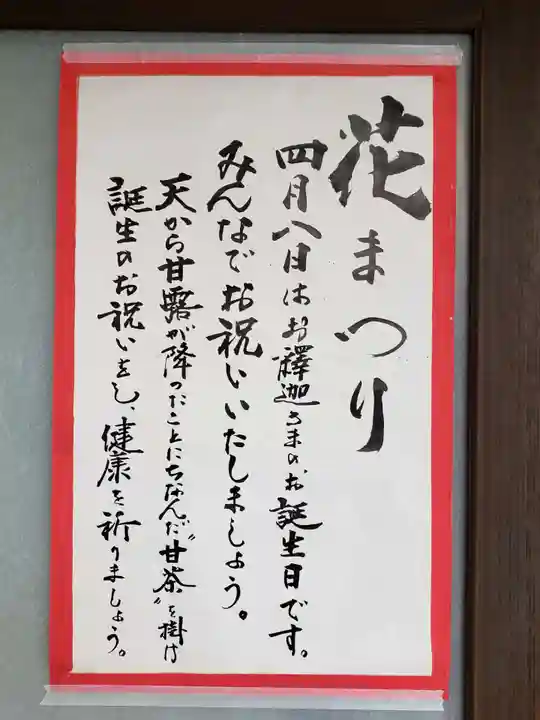 花まつり
四月八日はお釋迦さまのお誕生日です。
みんなでお祝いいたしましょう。
天から甘露が降ったことにちなんだ〝甘茶〟を掛け
誕生のお祝いをし、健康を祈りましょう。